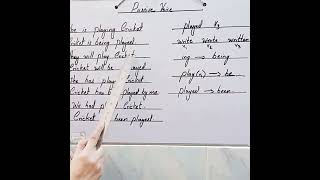 Passive Voice
he is playing Cricket
Cricket is being played
they will play Cricket
Cricket will be
She has play Cricket
Cricket has played by me
We had Cricket.
Cricket been played
played V3
write wrote written
V2 V3
ing → being
play(V1) → be
played → been